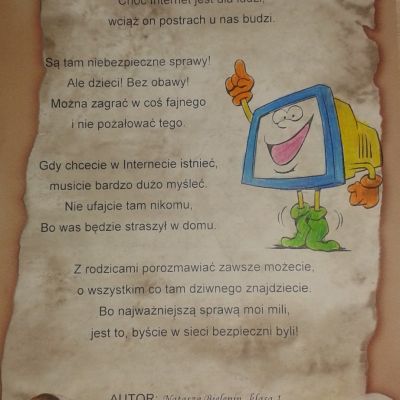 Choć Internet jest dla ludzi,
wciąż on postrach u nas budzi.
Są tam niebezpieczne sprawy!
Ale dzieci! Bez obawy!
Można zagrać w coś fajnego
i nie pożałować tego.
Gdy chcecie w Internecie istnieć,
musicie bardzo dużo myśleć.
Nie ufajcie tam nikomu,
Bo was będzie straszył w domu.
Z rodzicami porozmawiać zawsze możecie,
o wszystkim co tam dziwnego znajdziecie.
Bo najważniejszą sprawą moi mili,
jest to, byście w sieci bezpieczni byli!
AUTOR: Natasza klasa 1